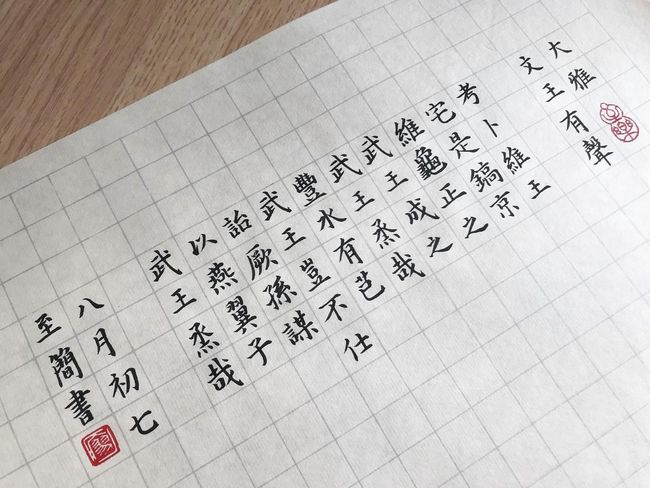 大雅
文王有聲
考卜維王
宅是鎬京
維龜正之
武王成之
武王烝哉
豐水有芑
武王豈不仕
詒厥孫謀
以燕翼子
武王烝哉
八月初七
至簡書